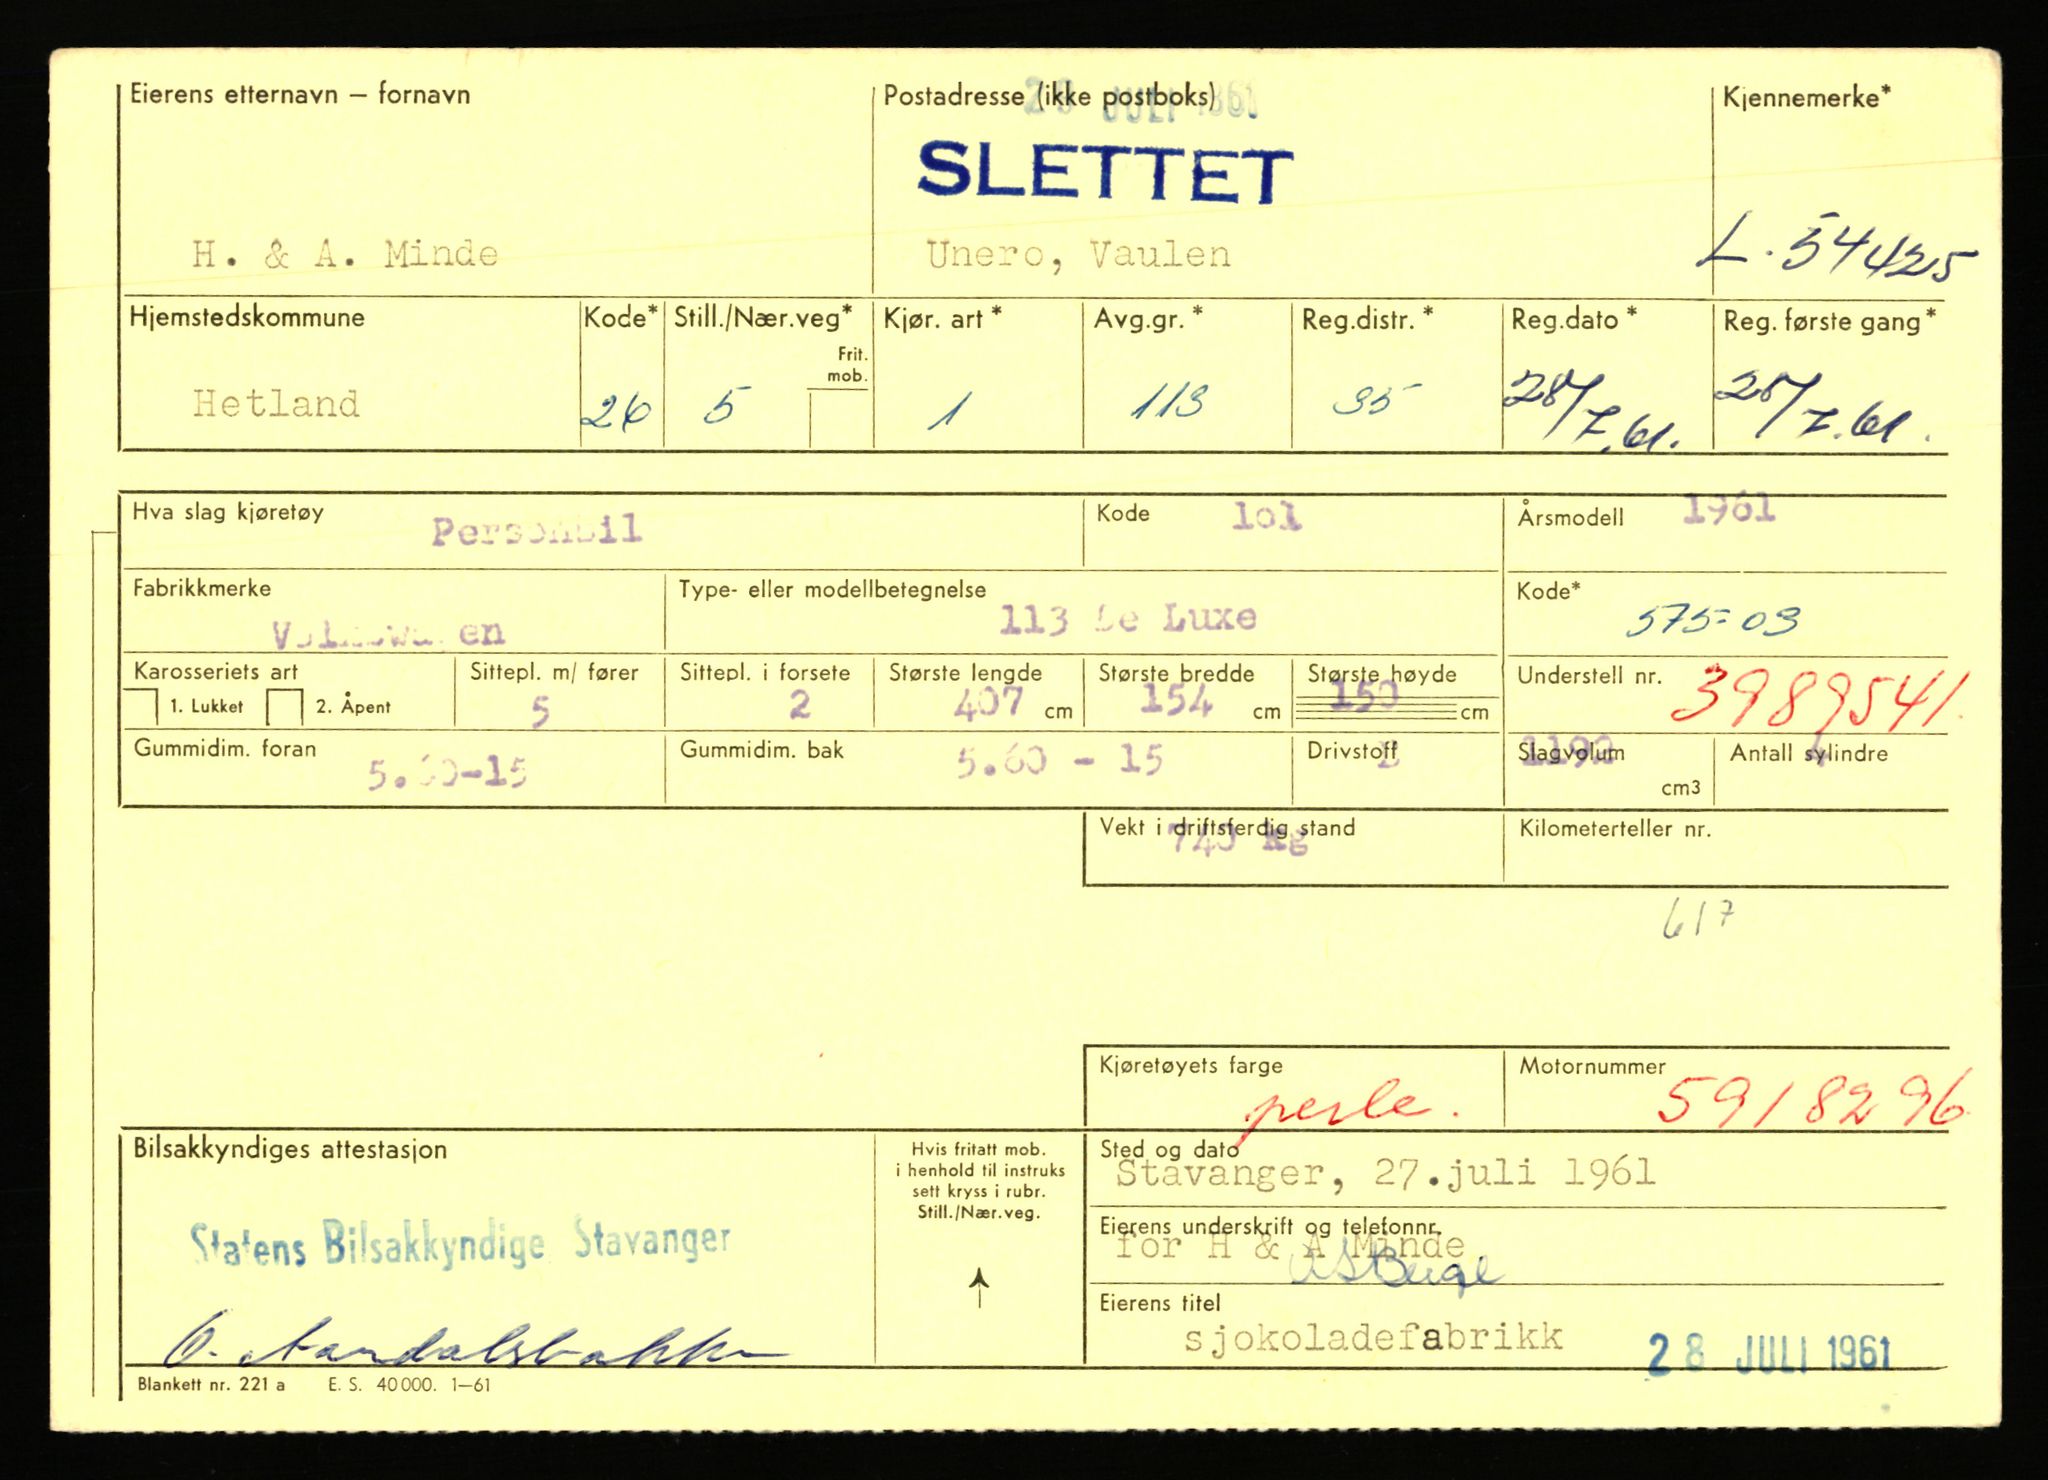 Eierens etternavn — fornavn
Postadresse (ikke postboks)
Kjennemerke*
JULI 1961
SLETTET
H. & A. Minde
Unero, Vaulen
L. 54425
Hjemstedskommune
Kode*
Still./Nær.veg*
Frit. mob.
Kjør. art *
Avg.gr. *
Reg.distr. *
Reg.dato *
Reg. første gang *
Hetland
26
5
1
113
35
28/7.61.
28/7.61.
Hva slag kjøretøy
Personbil
Kode
101
Årsmodell
1961
Fabrikkmerke
Volkswagen
Type- eller modellbetegnelse
113 De Luxe
Kode*
575-03
Karosseriets art
1. Lukket
2. Åpent
Sittepl. m/ fører
5
Sittepl. i forsete
2
Største lengde
407 cm
Største bredde
154 cm
Største høyde
150 cm
Understell nr.
3989541.
Gummidim. foran
5.60-15
Gummidim. bak
5.60 - 15
Drivstoff
Slagvolum
1192
cm3
Antall sylindre
4
Vekt i driftsferdig stand
740 kg
Kilometerteller nr.
617
Kjøretøyets farge
perle.
Motornummer
5918296
Bilsakkyndiges attestasjon
Hvis fritatt mob.
i henhold til instruks
sett kryss i rubr.
Still./Nær.veg.
Sted og dato
Stavanger, 27.juli 1961
Statens Bilsakkyndige Stavanger
Eierens underskrift og telefonnr.
for H & A Minde
Berge
Eierens titel
sjokoladefabrikk
28 JULI 1961
Blankett nr. 221 a E. S. 40000. 1—61